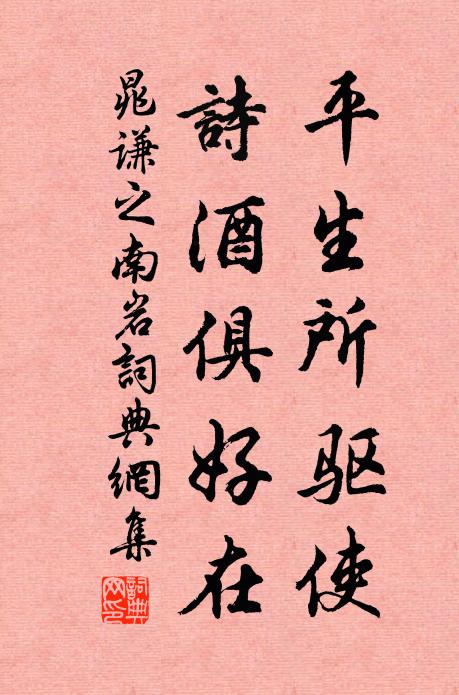 平生所驱使
詩酒俱好在
晁谦之南岩詞典網集
詞典网印